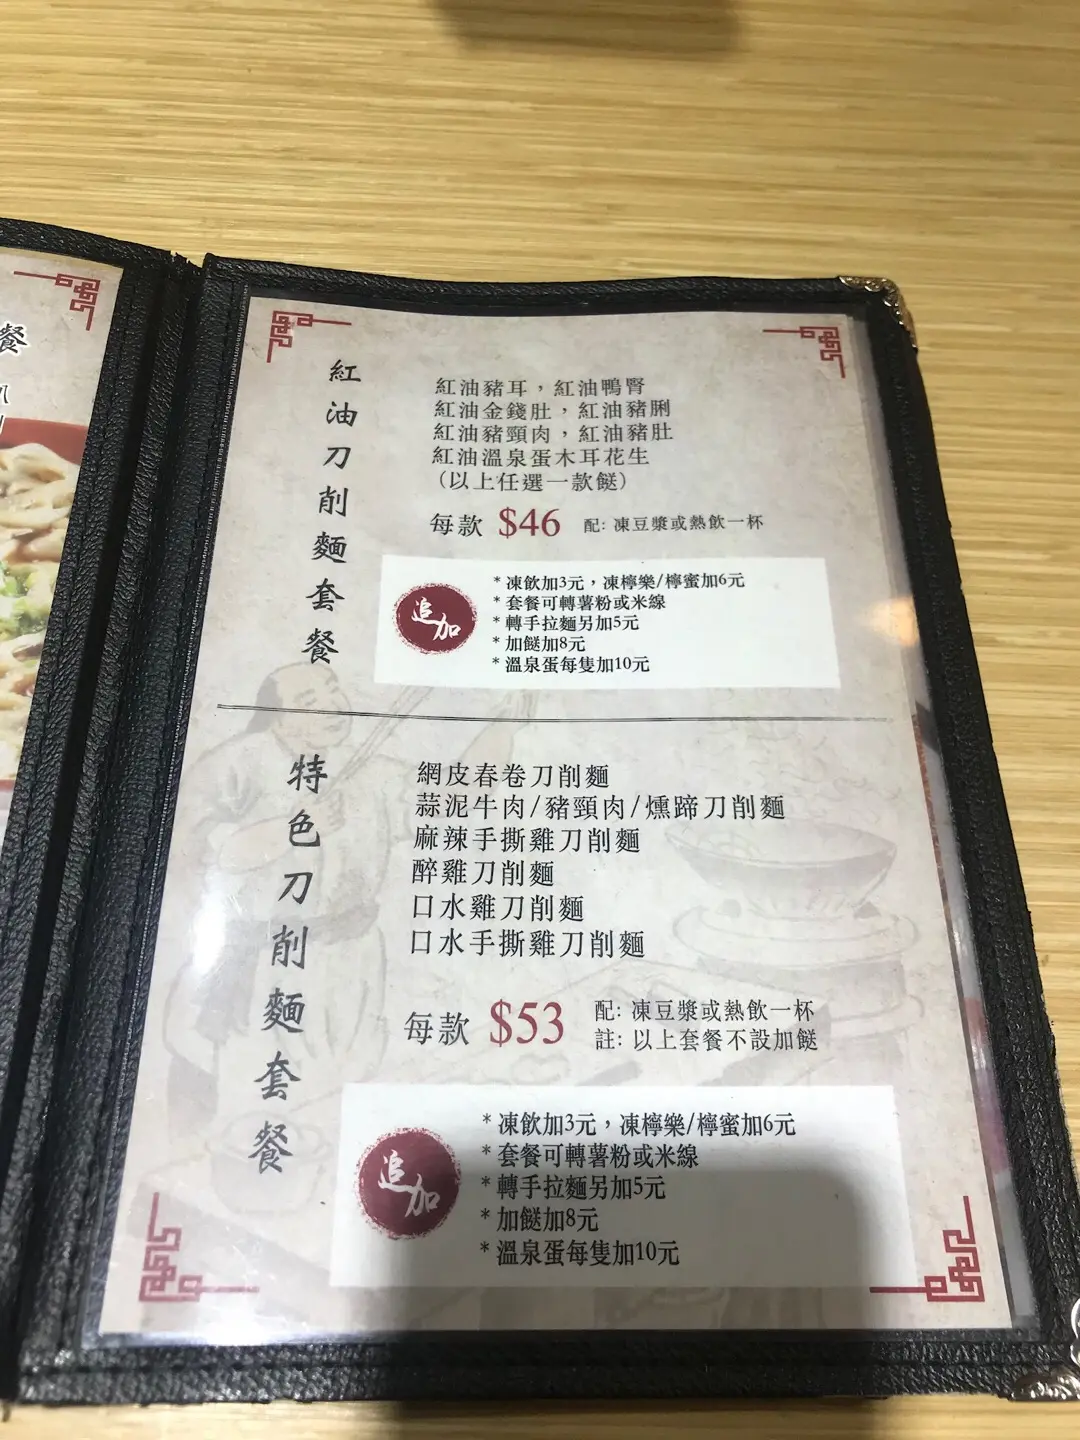 餐
紅油刀削麵套餐
紅油豬耳，紅油鴨腎
紅油金錢肚，紅油豬脷
紅油豬頸肉，紅油豬肚
紅油溫泉蛋木耳花生
（以上任選一款餸）
每款 $46 配: 凍豆漿或熱飲一杯
追加
* 凍飲加3元，凍檸樂/檸蜜加6元
* 套餐可轉薯粉或米線
* 轉手拉麵另加5元
* 加餸加8元
* 溫泉蛋每隻加10元
特色刀削麵套餐
網皮春卷刀削麵
蒜泥牛肉/豬頸肉/燻蹄刀削麵
麻辣手撕雞刀削麵
醉雞刀削麵
口水雞刀削麵
口水手撕雞刀削麵
每款 $53 配: 凍豆漿或熱飲一杯
註: 以上套餐不設加餸
追加
* 凍飲加3元，凍檸樂/檸蜜加6元
* 套餐可轉薯粉或米線
* 轉手拉麵另加5元
* 加餸加8元
* 溫泉蛋每隻加10元